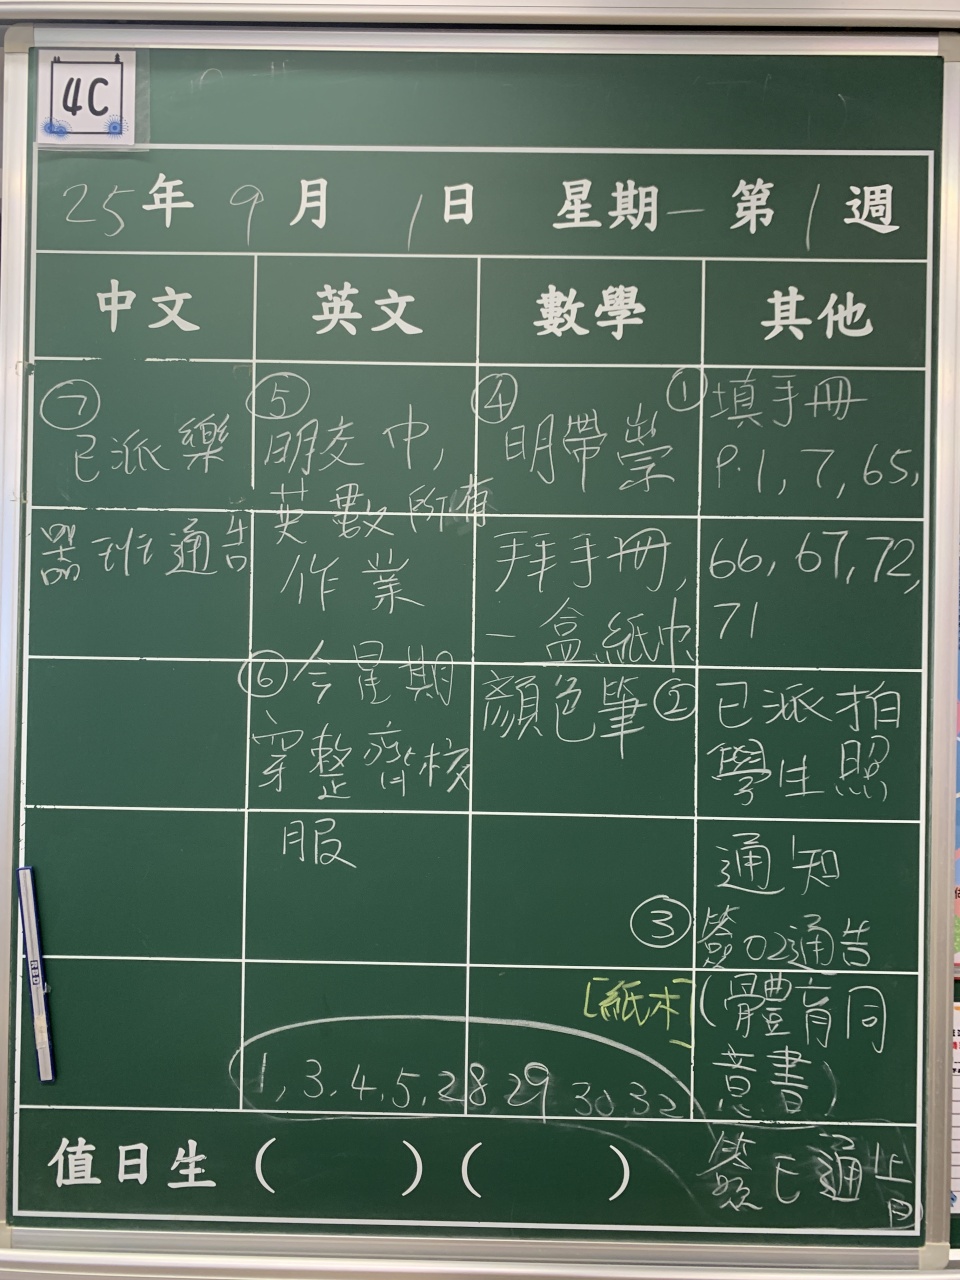 4C
25年9月1日 星期一 第1週
中文 英文 數學 其他
⑦
已派樂
器班通告
⑤
明交中,
英數所有
作業
⑥今星期
穿整齊校
服
④
明帶崇
拜手冊,
一盒紙巾
顏色筆
①填手冊
P.1,7,65,
66,67,72,
71
②已派拍
學生照
通知
③簽02通告
[紙本]
(體育同
意書)
1,3,4,5,28 29 30 32
簽E通
值日生( )( )